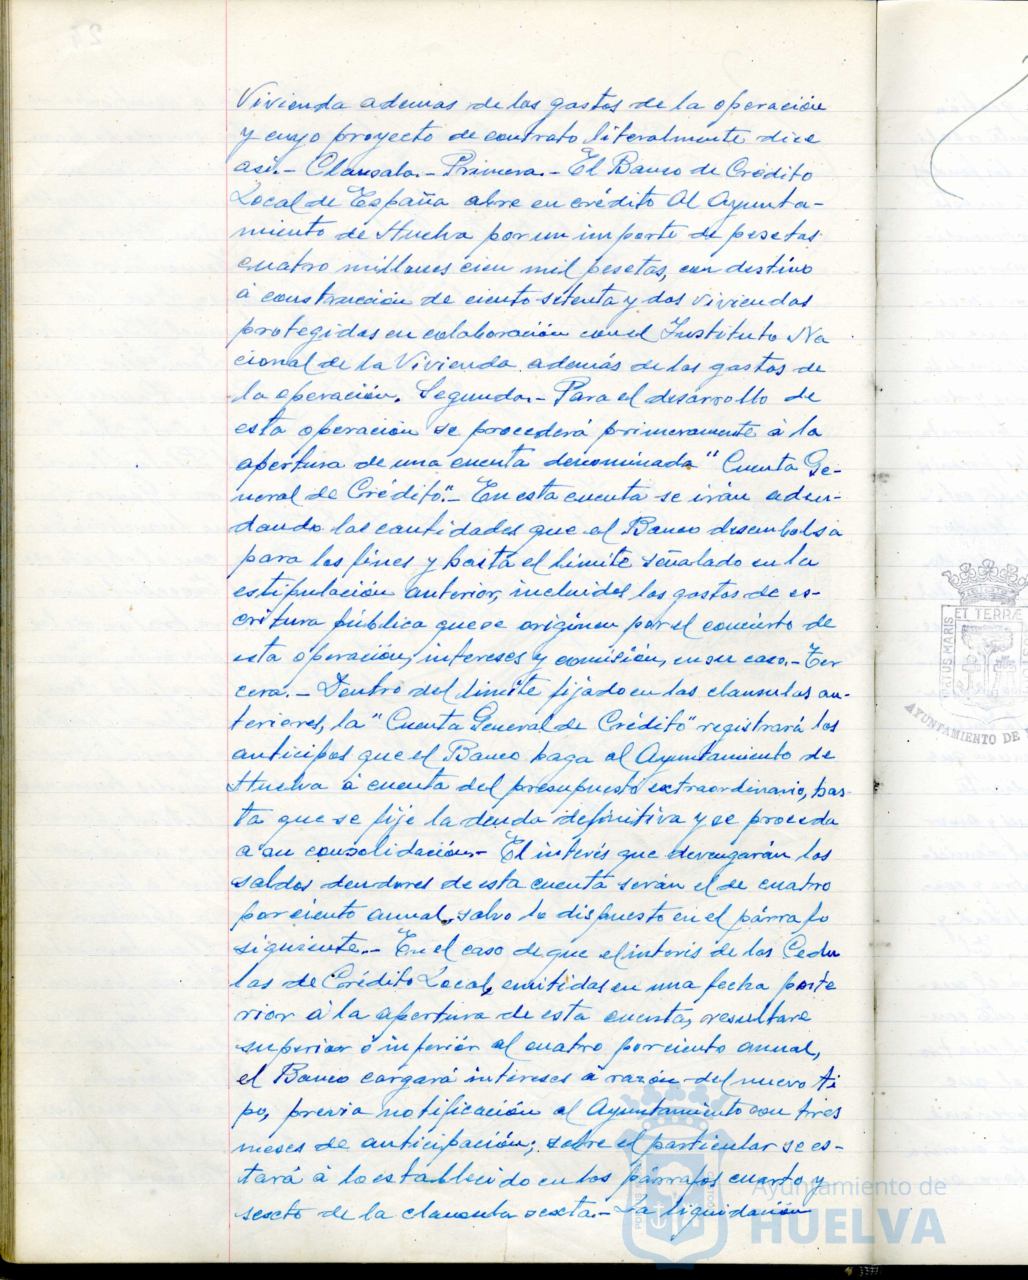 Vivienda ademas de los gastos de la operación
y cuyo proyecto de contrato literalmente dice
asi.- Clausala.- Primera.- El Banco de Crédito
Local de España abre en crédito Al Ayunta-
miento de Huelva por un importe de pesetas
cuatro millones cien mil pesetas, con destino
á construcción de ciento setenta y dos viviendas
protegidas en colaboración con el Instituto Na
cional de la Vivienda además de los gastos de
la operación. Segunda.- Para el desarrollo de
esta operación se procederá primeramente á la
apertura de una cuenta denominada "Cuenta Ge-
neral de Crédito".- En esta cuenta se irán adeu-
dando las cantidades que el Banco desembolsa
para los fines y hasta el limite señalado en la
estipulación anterior, incluidos los gastos de es-
critura pública que se originen por el concierto de
esta operación, intereses y comisión, en su caso.- Ter
cera.- Dentro del limite fijado en las clausulas an-
teriores, la "Cuenta General de Crédito" registrará los
anticipos que el Banco haga al Ayuntamiento de
Huelva á cuenta del presupuesto extraordinario, has-
ta que se fije la deuda definitiva y se proceda
a su consolidación.- El interés que devengarán los
saldos deudores de esta cuenta serán el de cuatro
por ciento anual, salvo lo dispuesto en el párrafo
siguiente.- En el caso de que el interés de las Cedu
las de Crédito Local, emitidas en una fecha poste
rior á la apertura de esta cuenta, resultare
superior ó inferior al cuatro por ciento anual,
el Banco cargará intereses á razón del nuevo ti
po, previa notificación al Ayuntamiento con tres
meses de anticipación; sobre el particular se es-
tará á lo establecido en los párrafos cuarto y
sexto de la clausula sexta.- La liquidación
ET TERRÆ
AYUNTAMIENTO DE
Ayuntamiento de
HUELVA